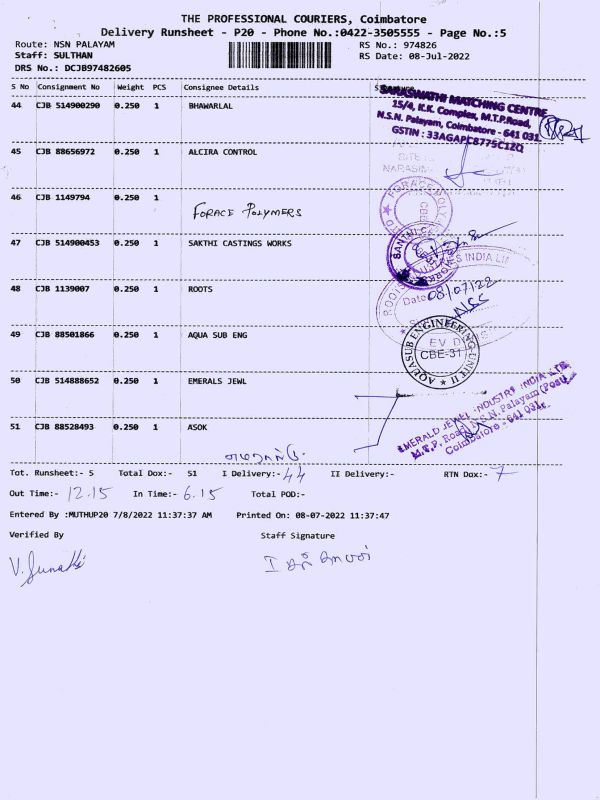 THE PROFESSIONAL COURIERS, Coimbatore
Delivery Runsheet - P20 - Phone No.:0422-3505555 - Page No.:5
Route: NSN PALAYAM RS No.: 974826
Staff: SULTHAN RS Date: 08-Jul-2022
DRS No.: DCJB97482605
S No Consignment No Weight PCS Consignee Details
44 CJB 514900290 0.250 1 BHAWARLAL
SARASWATHI MATCHING CENTRE
15/4, K.K. Complex, M.T.P.Road,
N.S.N. Palayam, Coimbatore - 641 031.
GSTIN : 33AGAPC8775C1ZQ
45 CJB 88656972 0.250 1 ALCIRA CONTROL
46 CJB 1149794 0.250 1
FORACE POLYMERS
47 CJB 514900453 0.250 1 SAKTHI CASTINGS WORKS
48 CJB 1139007 0.250 1 ROOTS
Date 08/07/22
49 CJB 88501866 0.250 1 AQUA SUB ENG
AQUASUB ENGINEERING-UNIT II
CBE-31
50 CJB 514888652 0.250 1 EMERALS JEWL
EMERALD JEWEL INDUSTRY INDIA
M.T.P. Road, N.S.N. Palayam (Post)
Coimbatore - 641 031.
51 CJB 88528493 0.250 1 ASOK
Tot. Runsheet:- 5 Total Dox:- 51 I Delivery:- 44 II Delivery:- RTN Dox:- 7
Out Time:- 12.15 In Time:- 6.15 Total POD:-
Entered By :MUTHUP20 7/8/2022 11:37:37 AM Printed On: 08-07-2022 11:37:47
Verified By Staff Signature